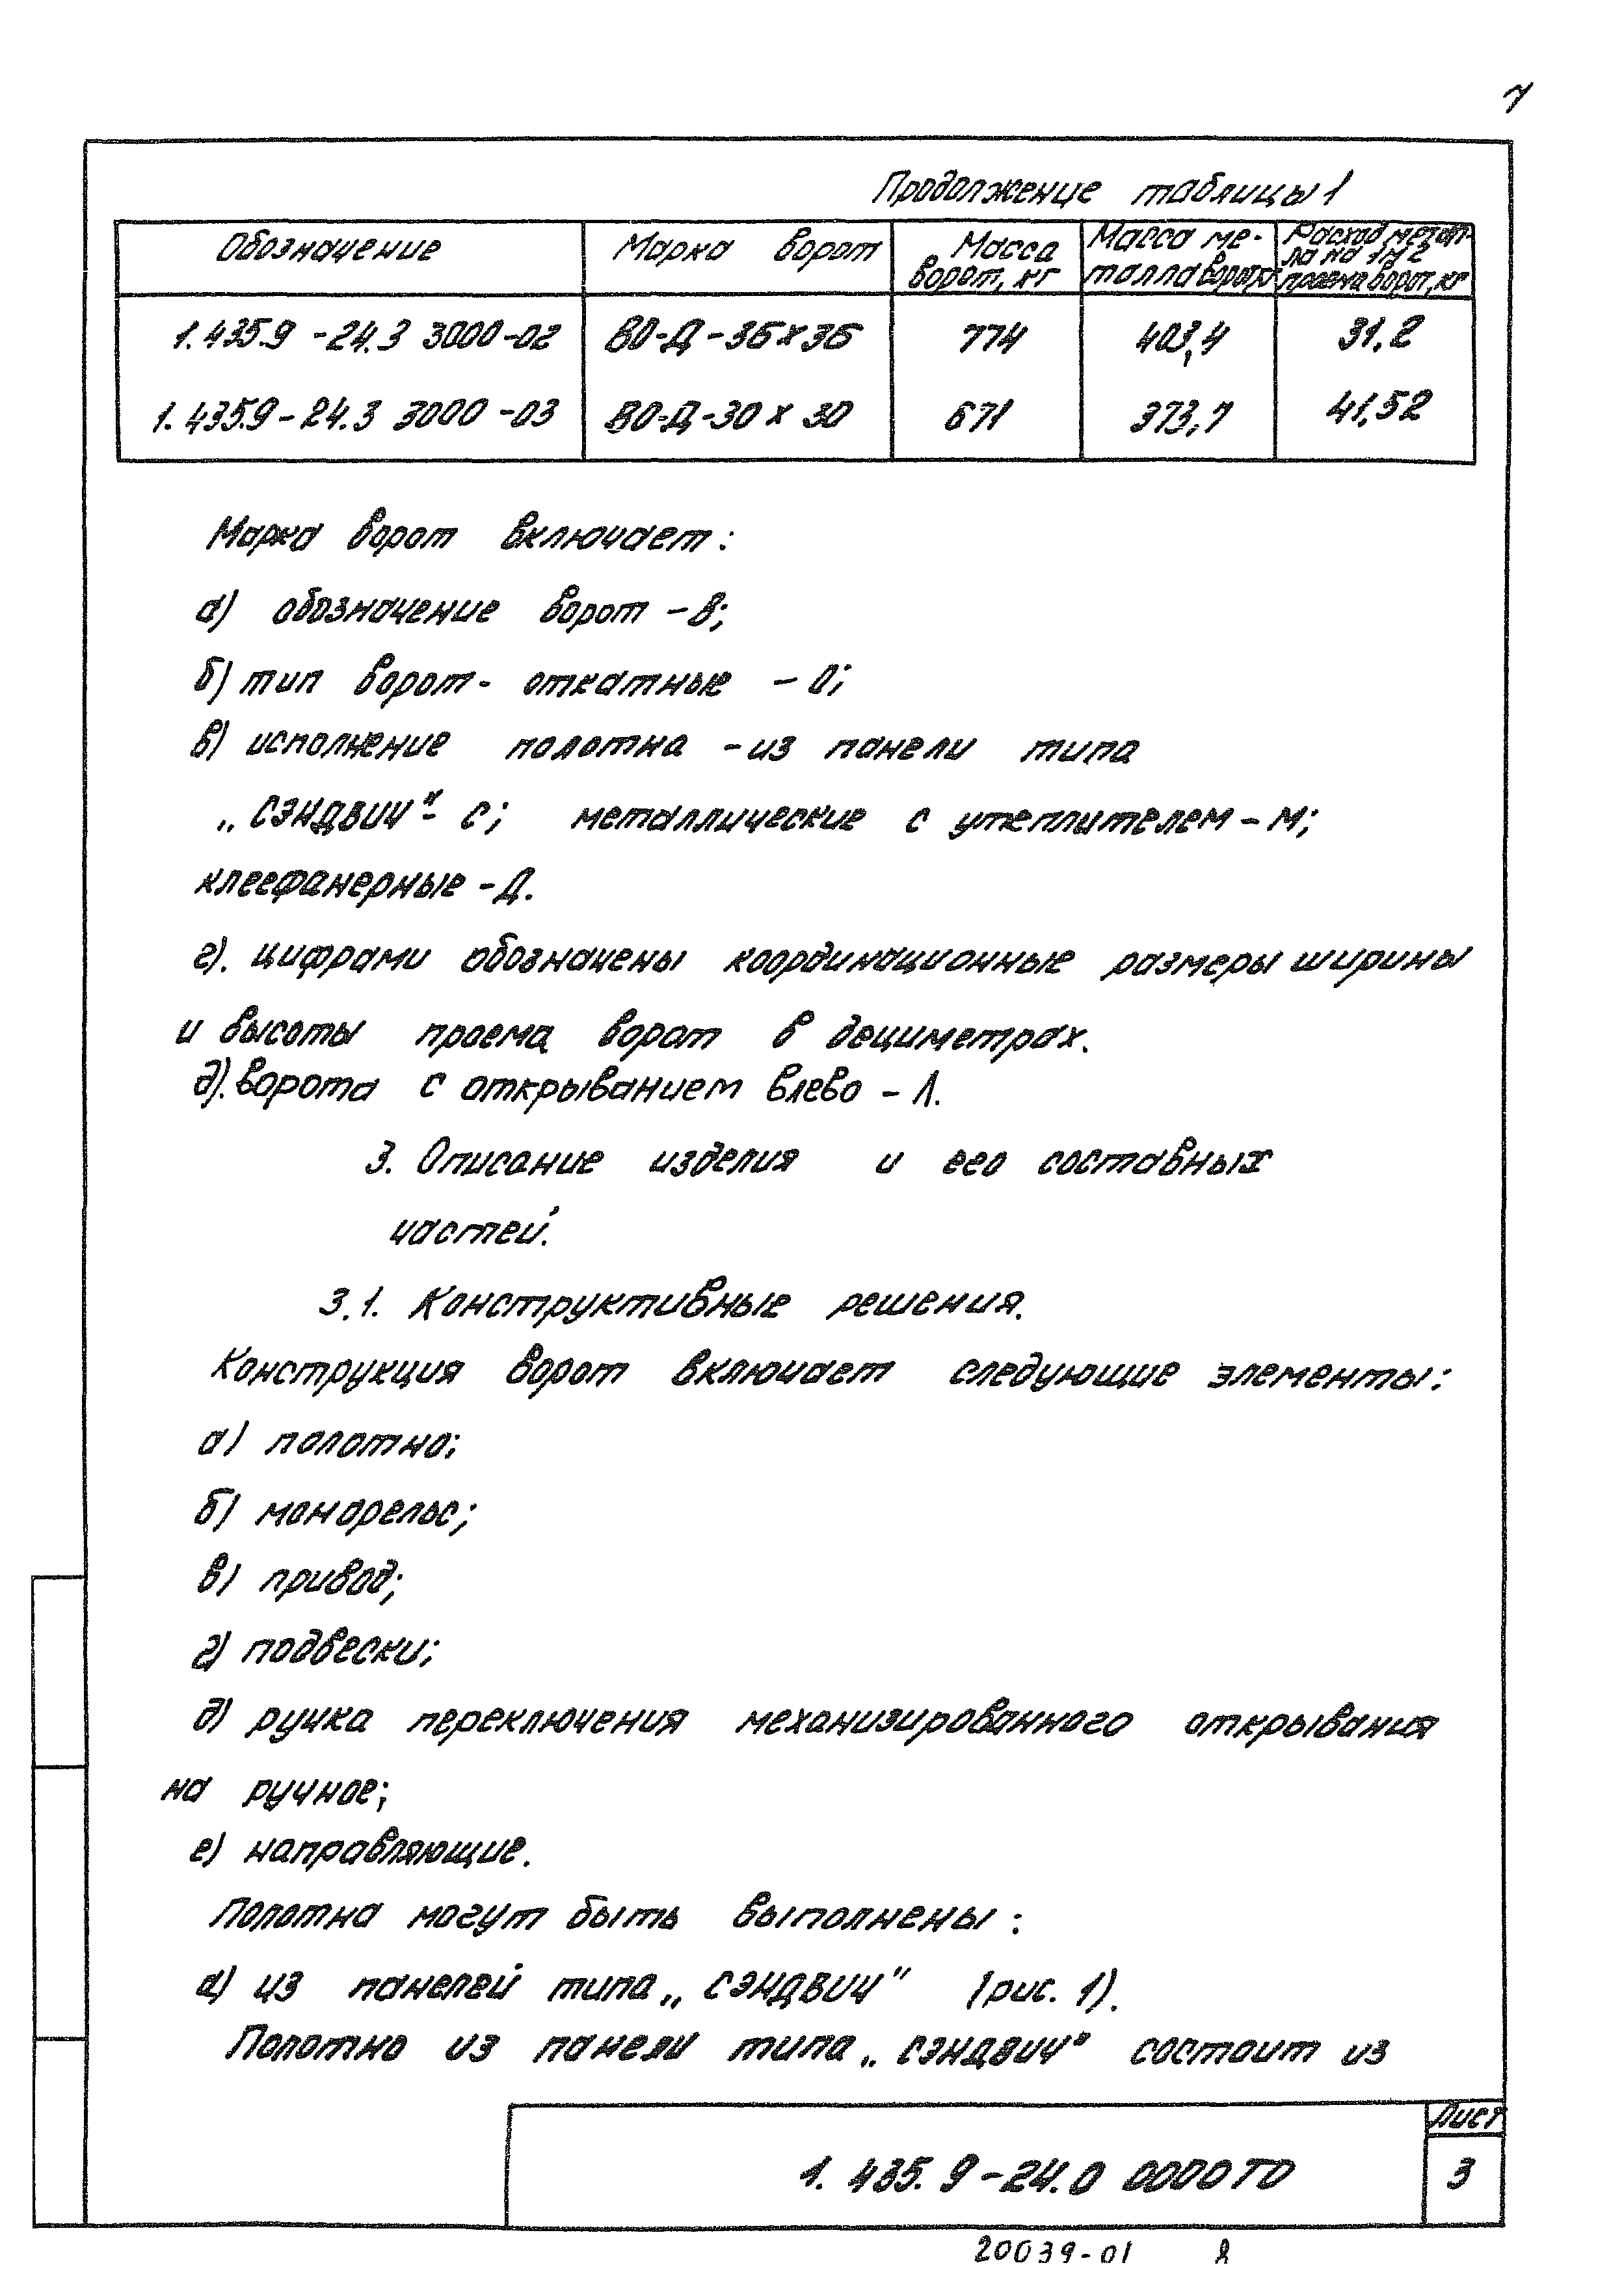 7
Продолжение таблицы 1
Обозначение Марка ворот Масса ворот, кг Масса ме- талла ворот, кг Расход метал- ла на 1м2 проема ворот, кг
1.435.9 -24.3 3000-02 ВО-Д-36х36 774 403,4 31,2
1.435.9-24.3 3000-03 ВО-Д-30х30 671 373,7 41,52
Марка ворот включает:
а) обозначение ворот - В;
б) тип ворот - откатные - О;
в) исполнение полотна - из панели типа
„СЭНДВИЧ" - С; металлические с утеплителем - М;
клеефанерные - Д.
г). цифрами обозначены координационные размеры ширины
и высоты проема ворот в дециметрах.
д). ворота с открыванием влево - Л.
3. Описание изделия и его составных
частей.
3.1. Конструктивные решения.
Конструкция ворот включает следующие элементы:
а) полотно;
б) монорельс;
в) привод;
г) подвески;
д) ручка переключения механизированного открывания
на ручное;
е) направляющие.
Полотна могут быть выполнены:
а) из панелей типа „СЭНДВИЧ" (рис. 1).
Полотно из панели типа „СЭНДВИЧ" состоит из
Лист
1.435.9-24.0 0000ТО 3
20039-01